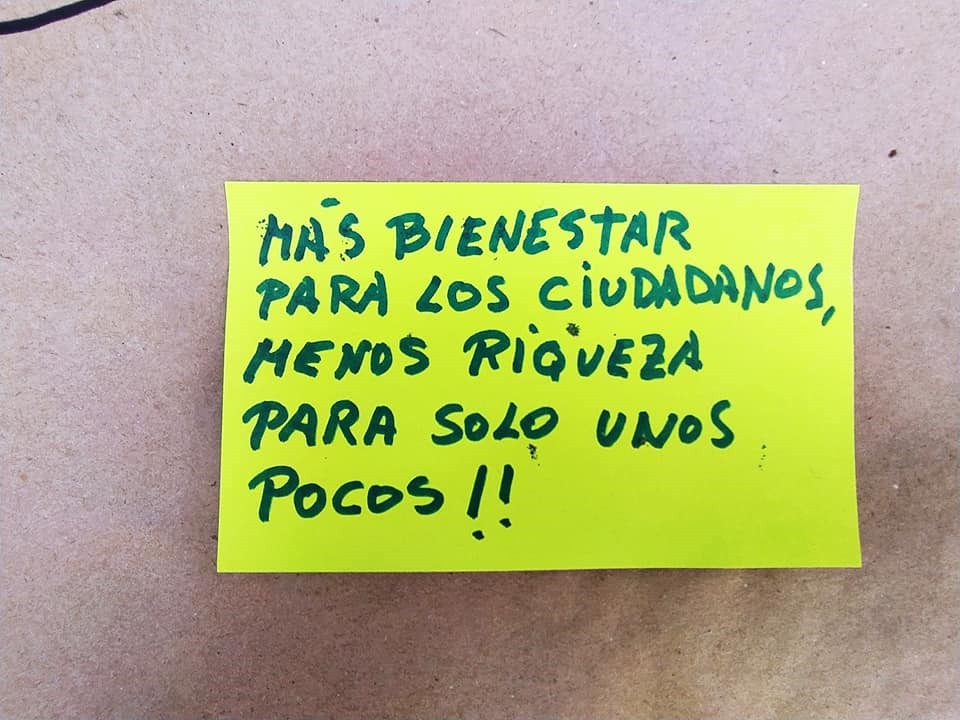 MÁS BIENESTAR
PARA LOS CIUDADANOS,
MENOS RIQUEZA
PARA SOLO UNOS
POCOS!!